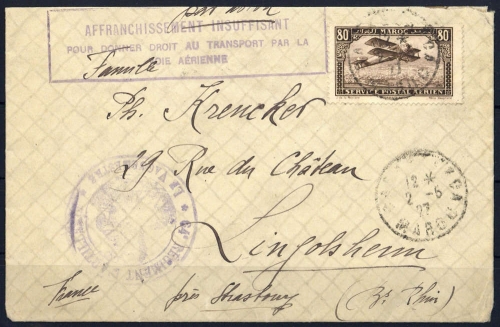 par avion
AFFRANCHISSEMENT INSUFFISANT
POUR DONNER DROIT AU TRANSPORT PAR LA
VOIE AÉRIENNE
80 MAROC 80
SERVICE POSTAL AÉRIEN
Famille
Ph. Krencker
29 Rue du Château
Lingolsheim
12 *
2 -5
MAROC
LE VAGUEMESTRE
RÉGIMENT
France près Strasbourg (Bs Rhin)